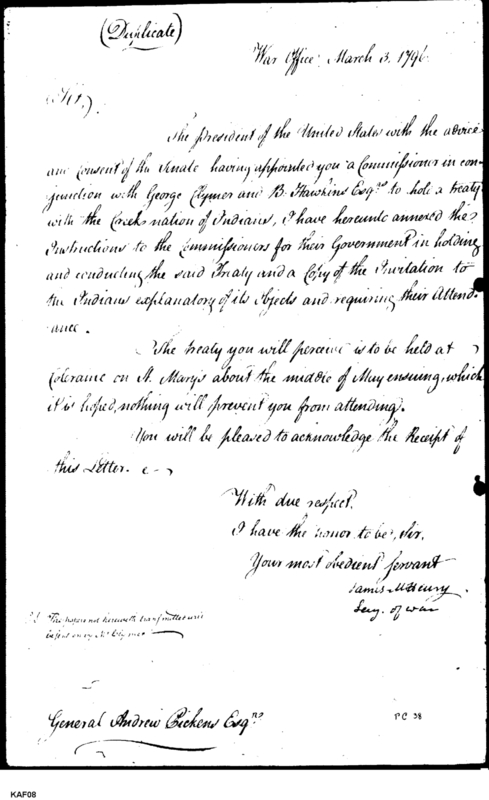 (Duplicate)
War Office March 3. 1796
Sir,
The president of the United States with the advice
and consent of the Senate having appointed you a Commissioner in con-
junction with George Clymer and B. Hawkins Esqrs to hold a treaty
with the Creek nation of Indians, I have hereunto annexed the
Instructions to the Commissioners for their Government in holding
and conducting the said Treaty and a Copy of the Invitation to
the Indians explanatory of its objects and requiring their Attend-
ance.
The treaty you will perceive is to be held at
Coleraine on St. Marys about the middle of May ensuing, which
it is hoped, nothing will prevent you from attending.
You will be pleased to acknowledge the Receipt of
this Letter.
With due respect.
I have the honor to be, Sir,
Your most obedient servant
James McHenry.
Secy. of war
The papers not herewith transmitted will
be sent on by Mr Clymer
General Andrew Pickens Esqr.
PC 38
KAF08